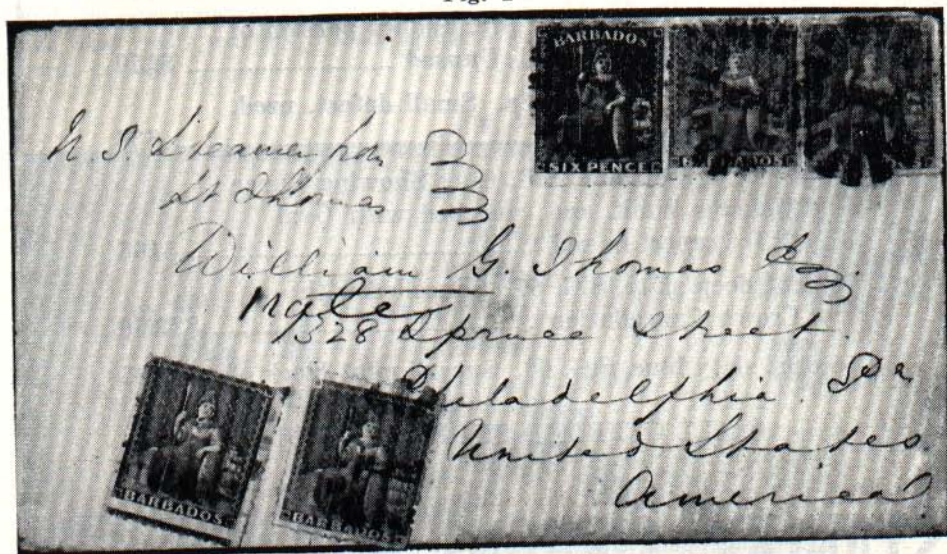 Fig.
BARBADOS
SIX PENCE
BARBADOS
U. S. Steamer from
St Thomas
William G. Thomas
1328 Spruce Street.
Philadelphia. Pa
United States
America
BARBADOS
BARBADOS